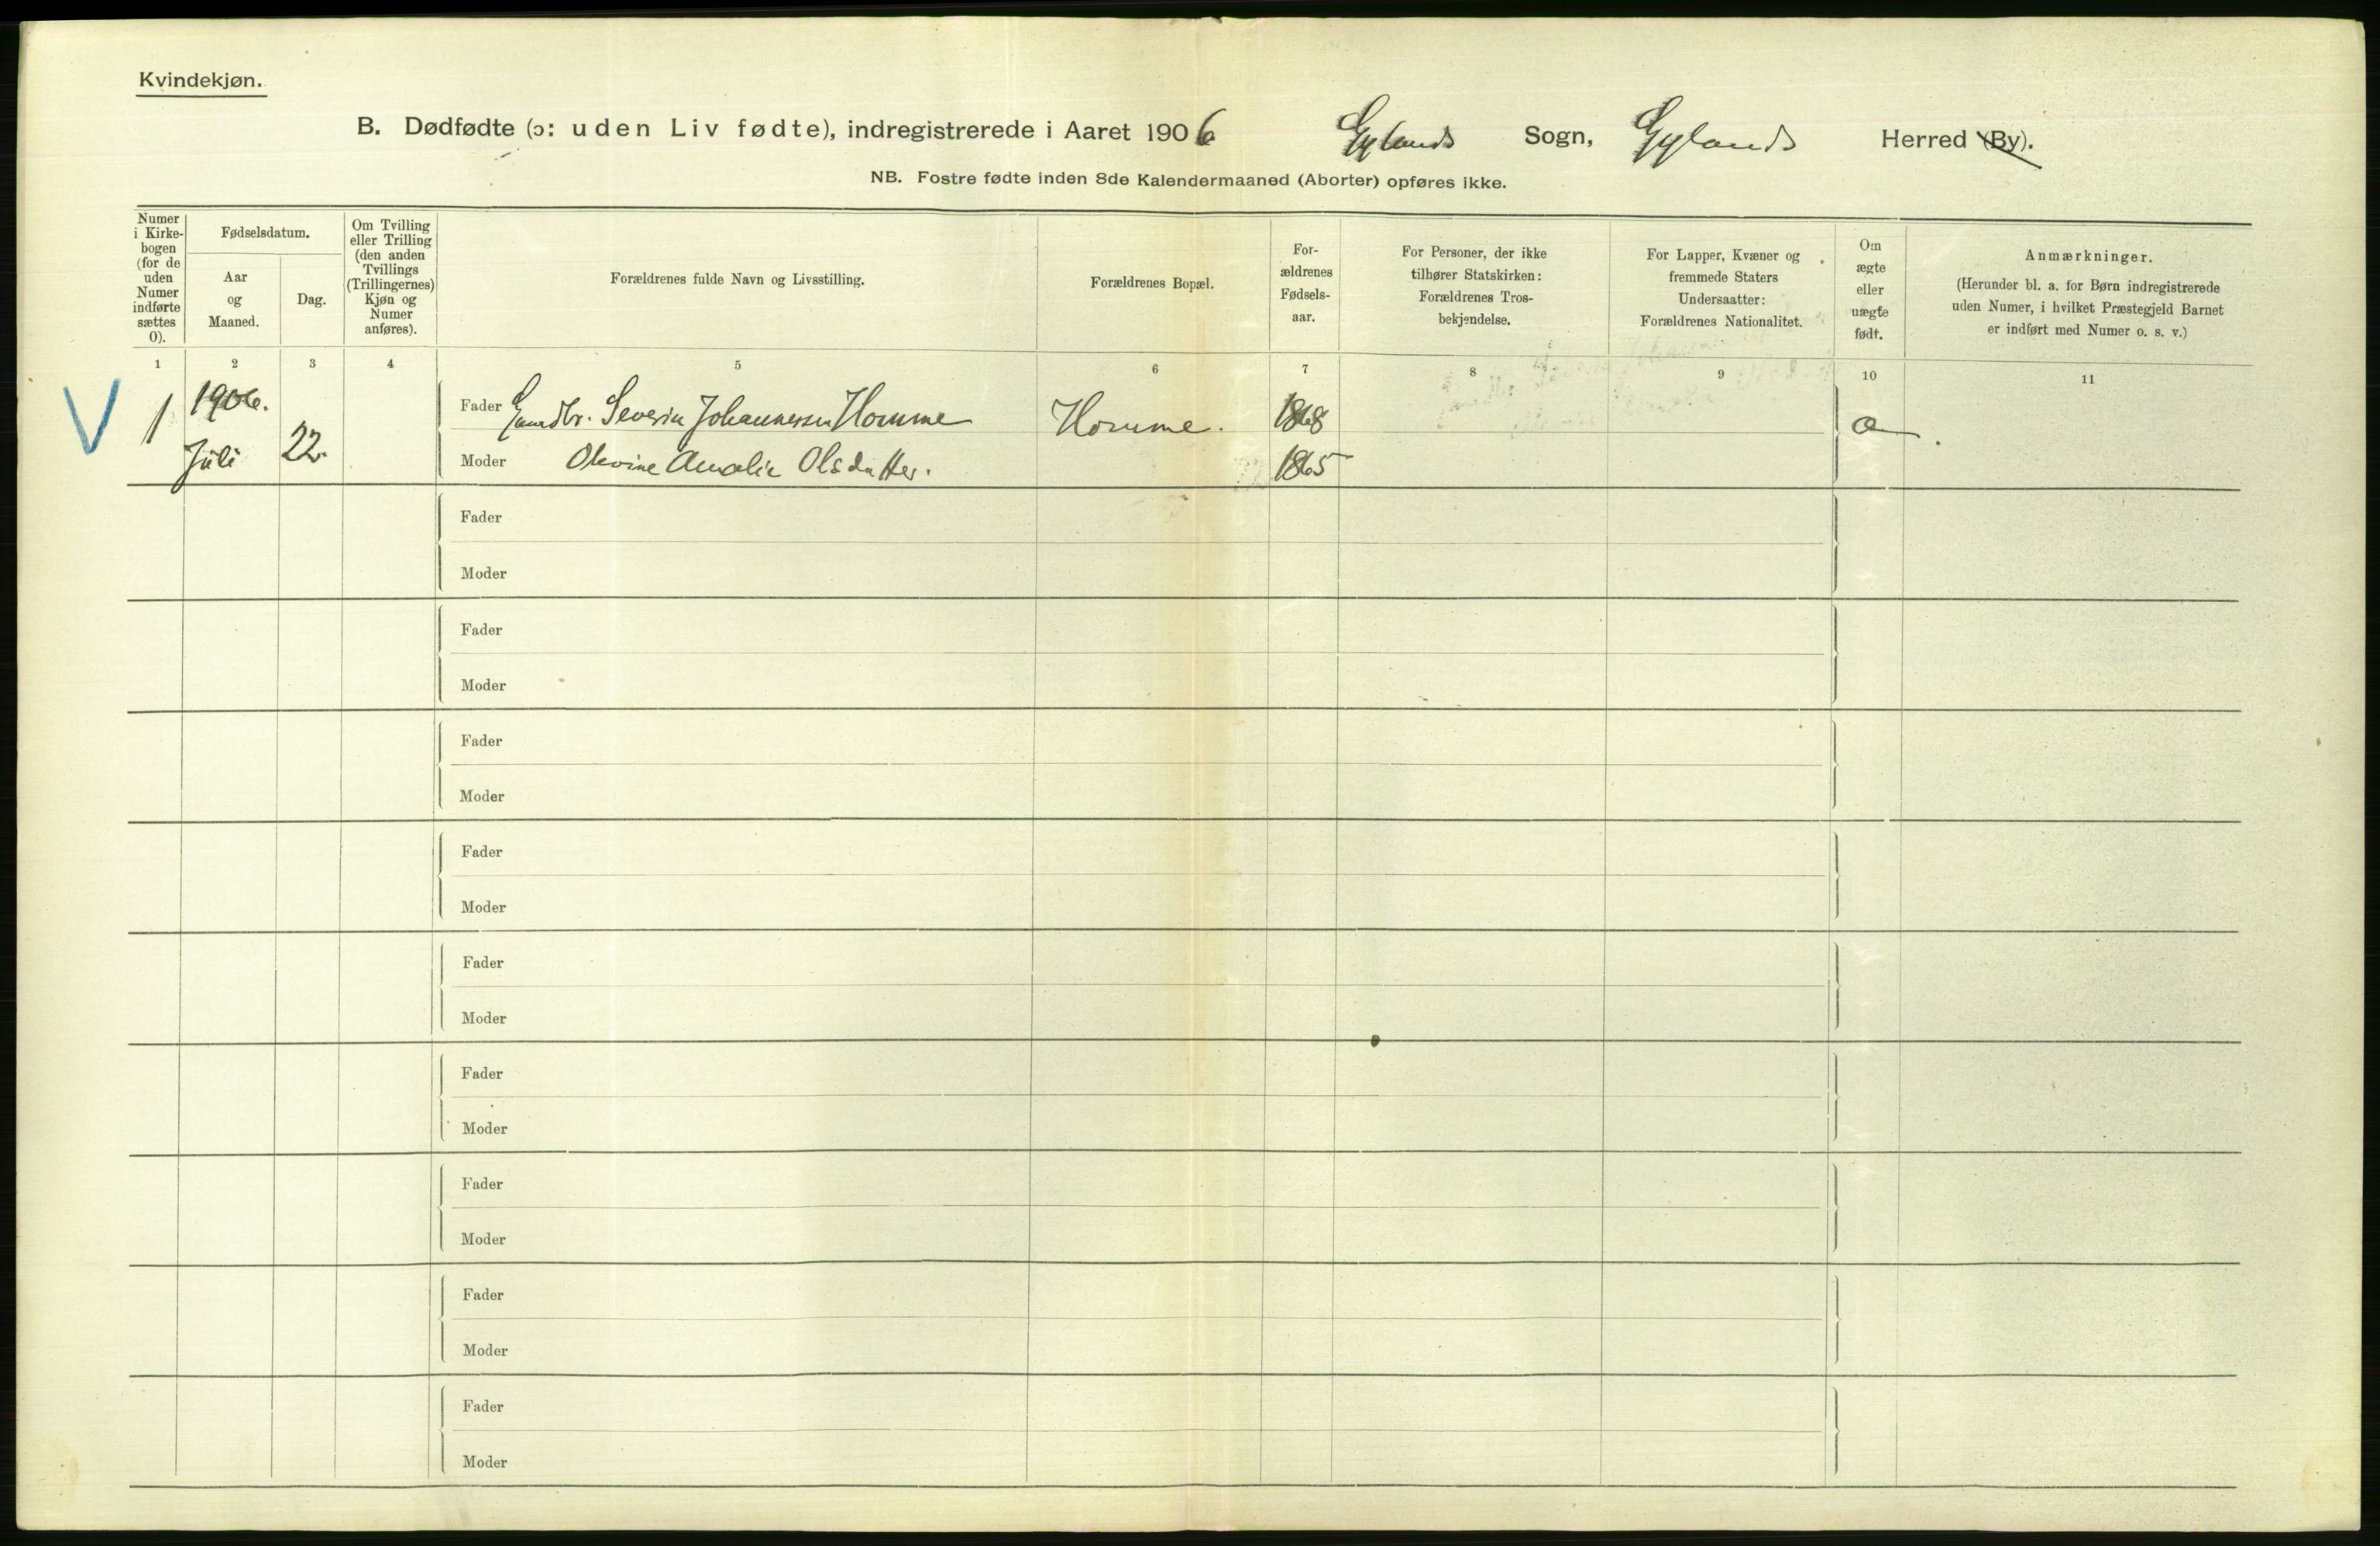 Kvindekjøn.
B. Dødfødte (ɔ: uden Liv fødte), indregistrerede i Aaret 1906 Gylands Sogn, Gylands Herred (By).
NB. Fostre fødte inden 8de Kalendermaaned (Aborter) opføres ikke.
Numer
i Kirke-
bogen
(for de
uden
Numer
indførte
sættes
0).
Fødselsdatum.
Aar
og
Maaned.
Dag.
Om Tvilling
eller Trilling
(den anden
Tvillings
(Trillingernes)
Kjøn og
Numer
anføres).
Forældrenes fulde Navn og Livsstilling.
Forældrenes Bopæl.
For-
ældrenes
Fødsels-
aar.
For Personer, der ikke
tilhører Statskirken:
Forældrenes Tros-
bekjendelse.
For Lapper, Kvæner og
fremmede Staters
Undersaatter:
Forældrenes Nationalitet.
Om
ægte
eller
uægte
født.
Anmærkninger.
(Herunder bl. a. for Børn indregistrerede
uden Numer, i hvilket Præstegjeld Barnet
er indført med Numer o. s. v.)
1 2 3 4 5 6 7 8 9 10 11
V 1 1906. Fader Gaardbr. Severin Johannessen Homme Homme. 1868
Juli 22. Moder Olevine Amalie Olsdatter. 1865
Fader
Moder
Fader
Moder
Fader
Moder
Fader
Moder
Fader
Moder
Fader
Moder
Fader
Moder
Fader
Moder
Fader
Moder